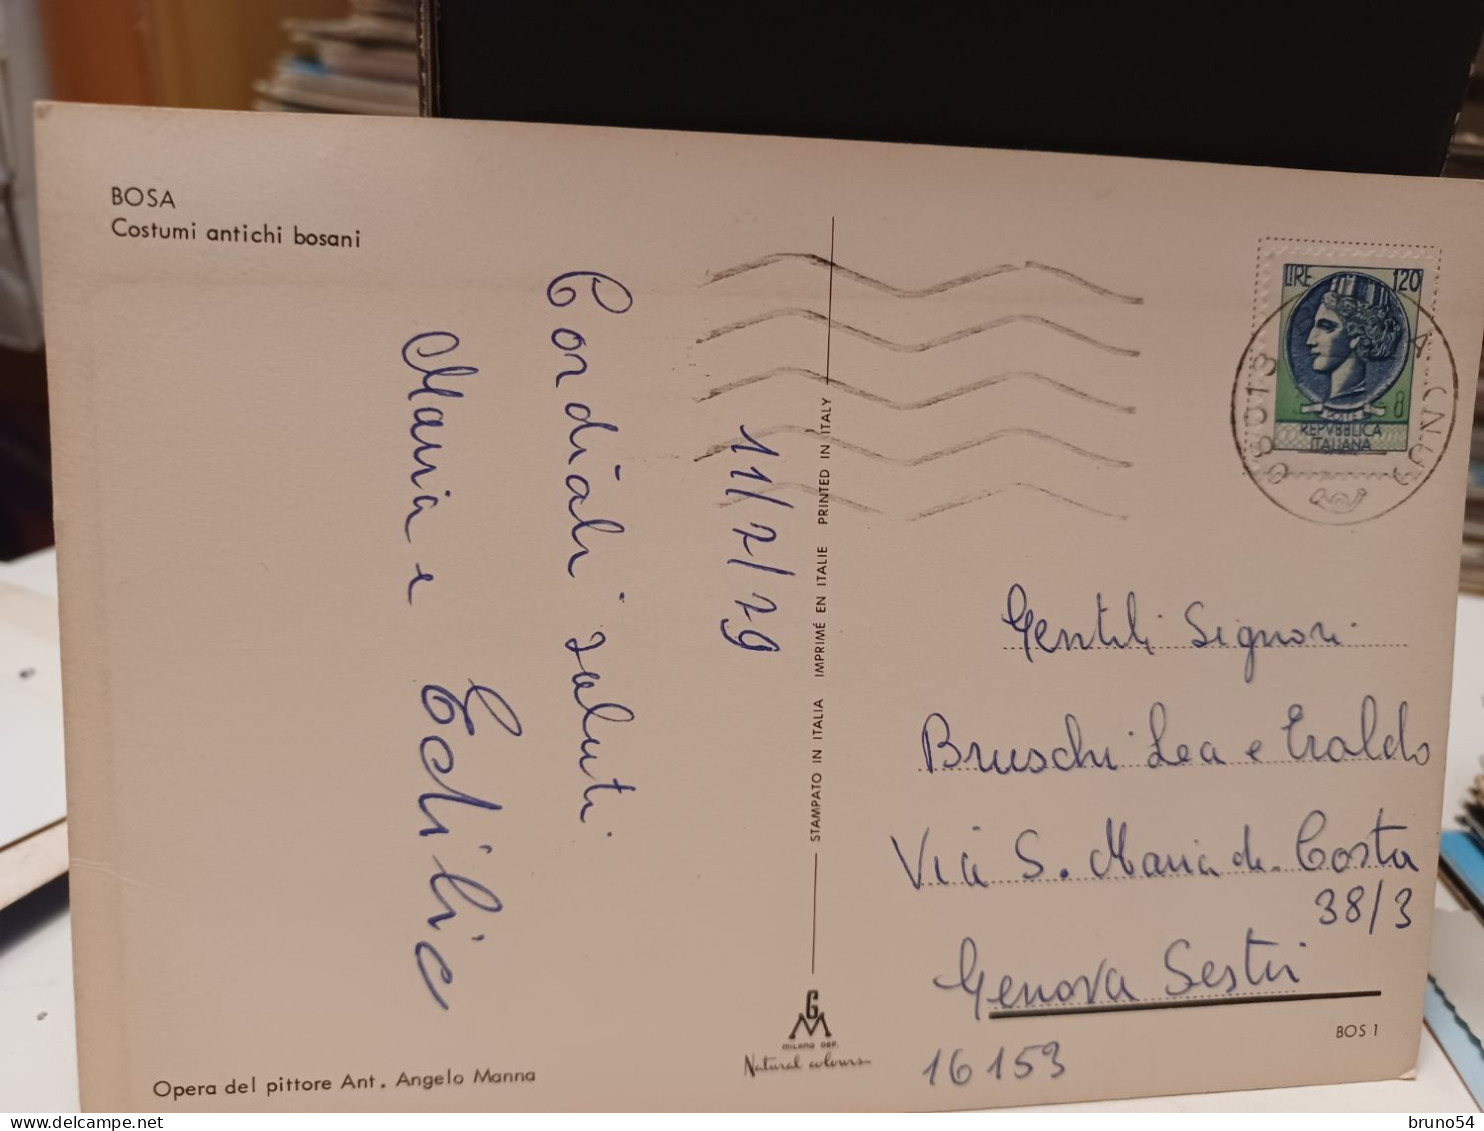 BOSA
Costumi antichi bosani
Cordiali saluti
Maria e Edilio
11/7/79
STAMPATO IN ITALIA IMPRIMÉ EN ITALIE PRINTED IN ITALY
LIRE 120
REPVBBLICA
ITALIANA
08013
Gentili Signori
Bruschi Lea e Eraldo
Via S. Maria de. Costa
38/3
Genova Sestri
16153
GM
MILANO DEP.
Natural colours
BOS 1
Opera del pittore Ant. Angelo Manna
bruno54